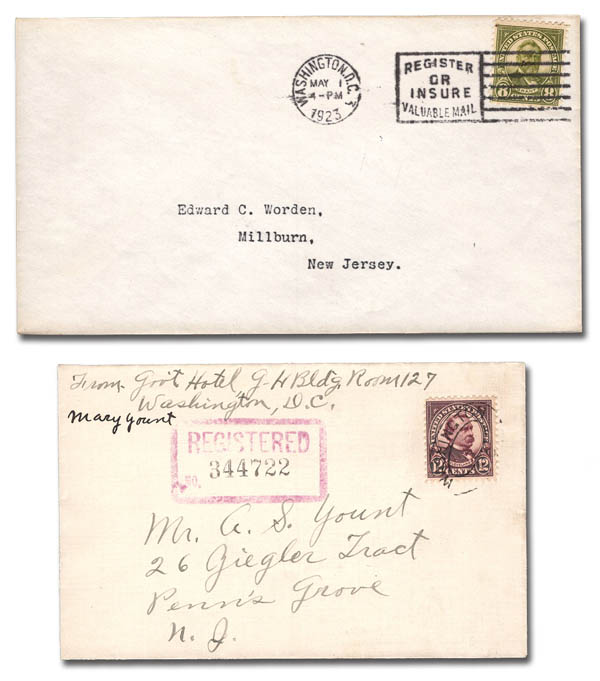 WASHINGTON, D.C.
MAY 1
4-PM
1923
REGISTER
OR
INSURE
VALUABLE MAIL
UNITED STATES POSTAGE
8 8
CENTS
Edward C. Worden,
Millburn,
New Jersey.
From Gov't Hotel G-H Bldg Room 127
Washington, D.C.
Mary Yount
REGISTERED
NO. 344722
UNITED STATES POSTAGE
12 CENTS 12
Mr. A. S. Yount
26 Giegler Tract
Penn's Grove
N. J.